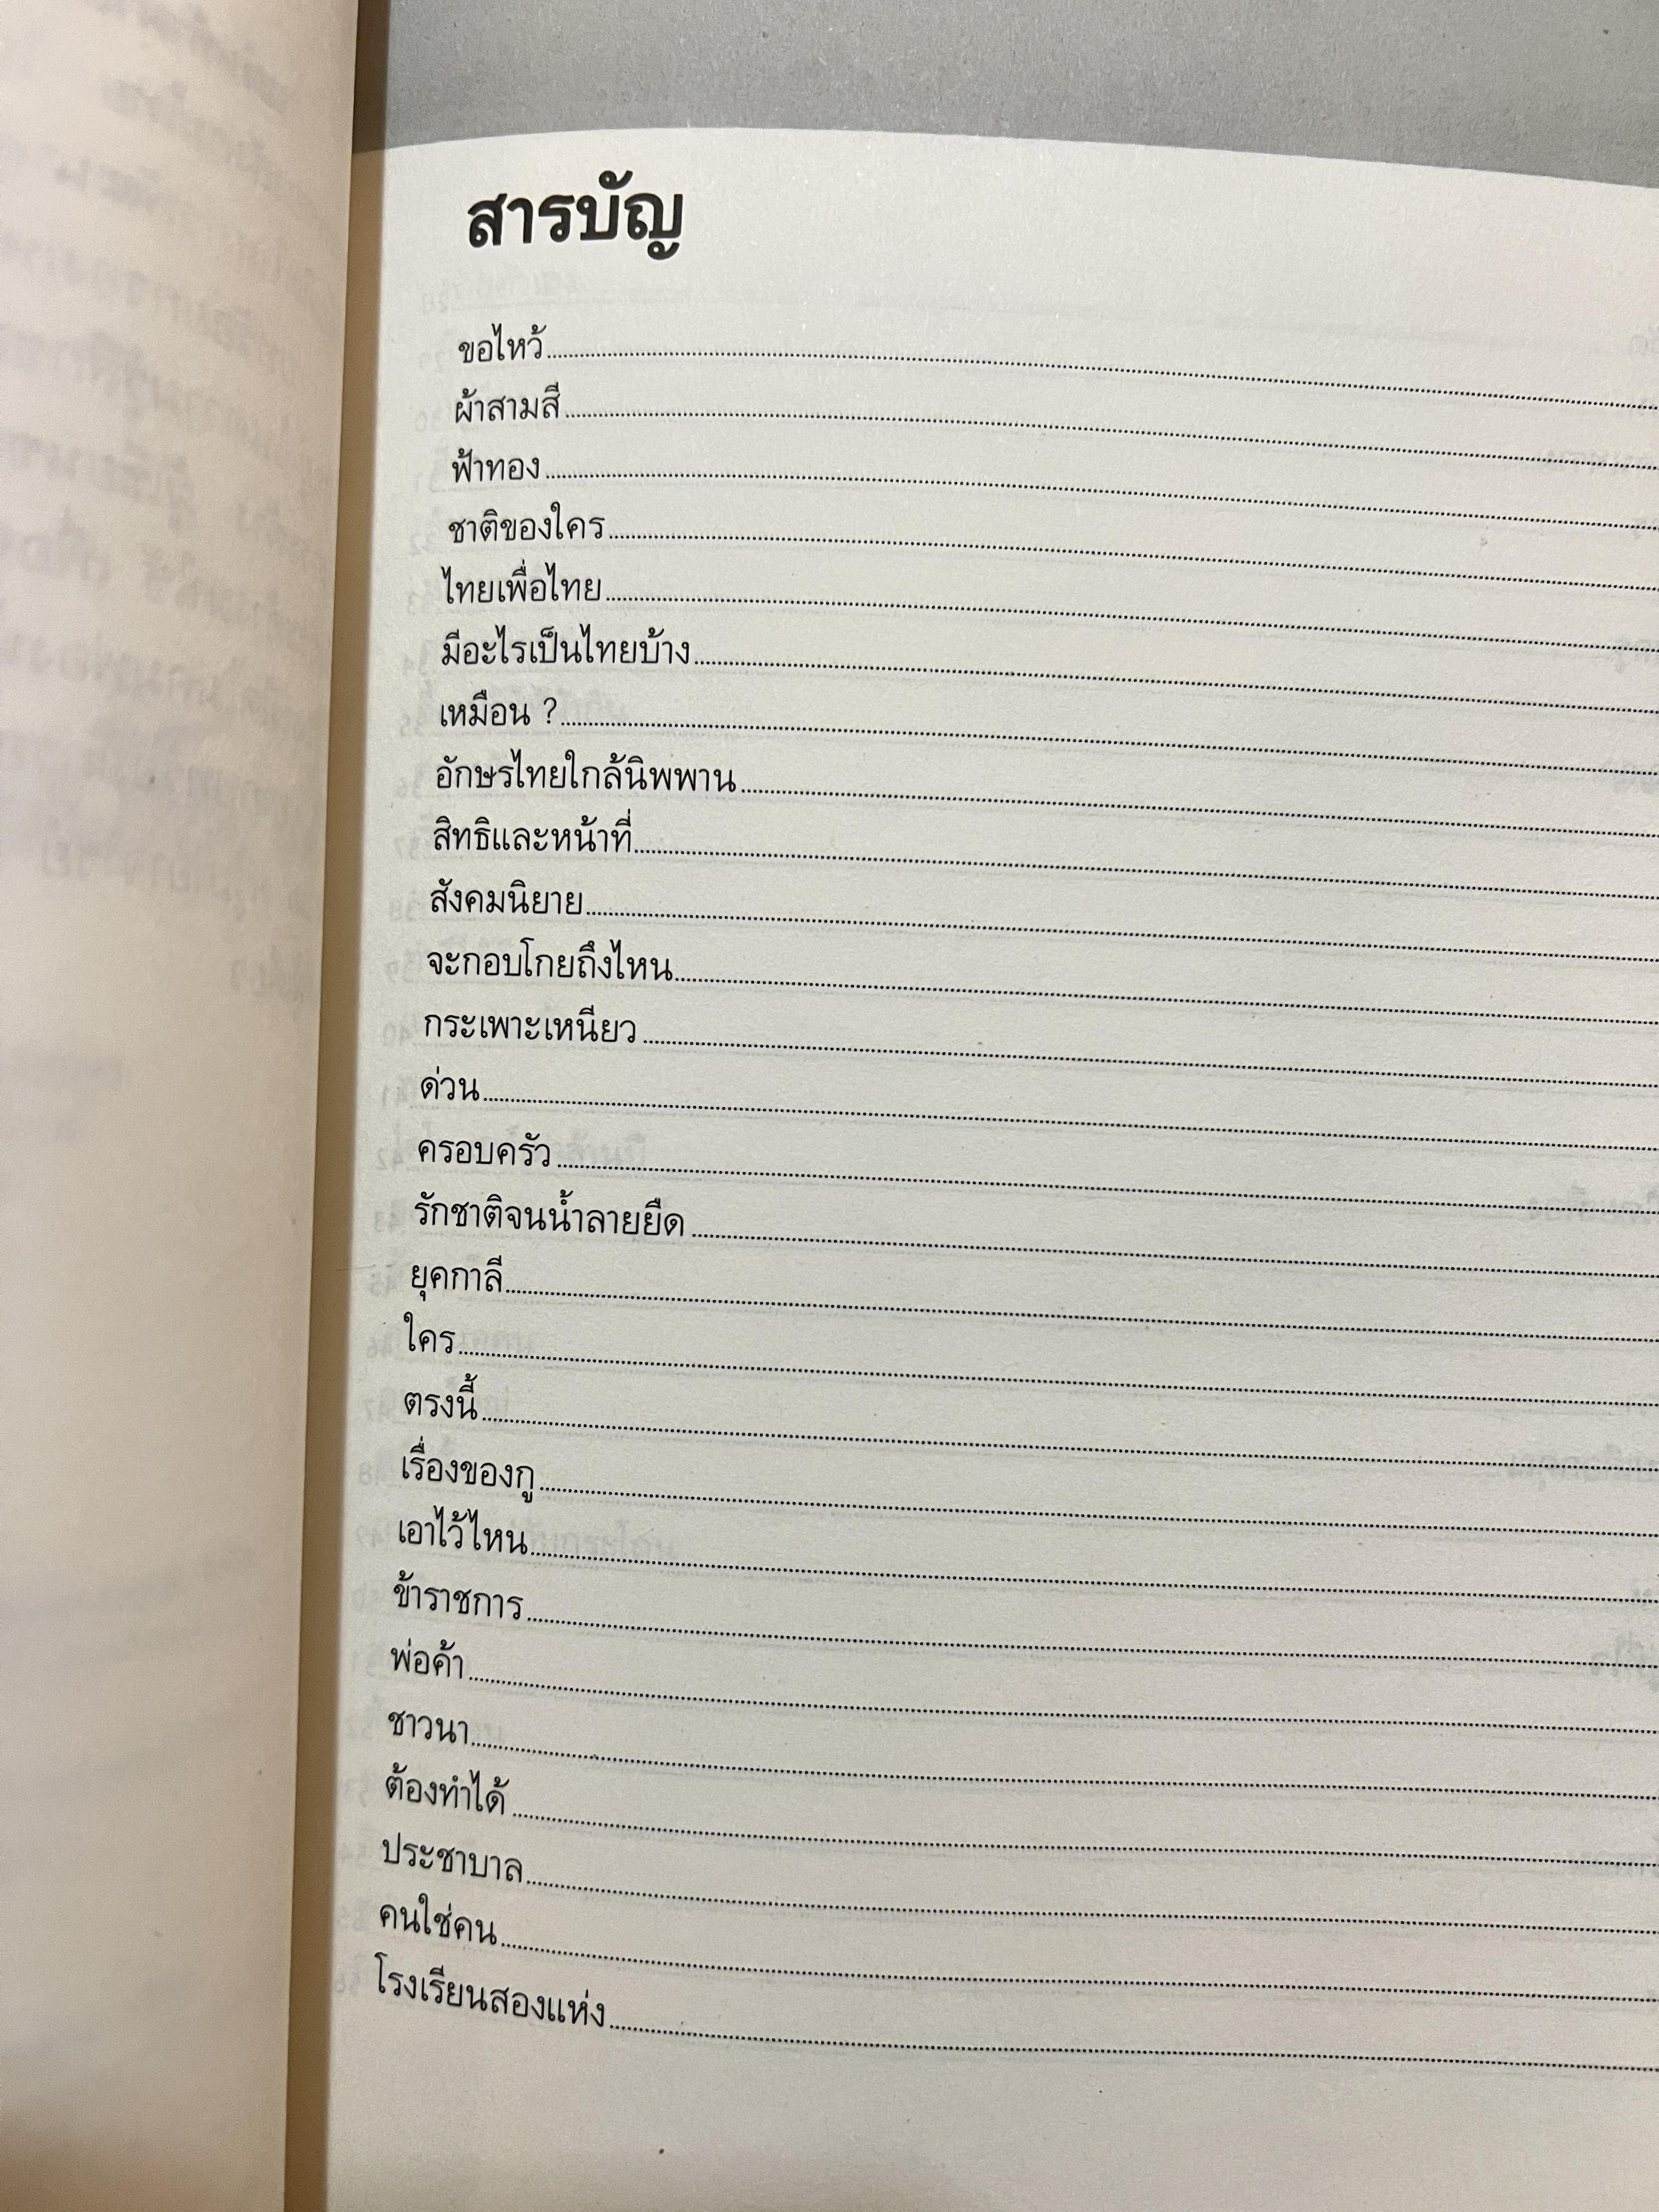 สารบัญ
ขอไหว้
ผ้าสามสี
ฟ้าทอง
ชาติของใคร
ไทยเพื่อไทย
มีอะไรเป็นไทยบ้าง
เหมือน ?
อักษรไทยใกล้นิพพาน
สิทธิและหน้าที่
สังคมนิยาย
จะกอบโกยถึงไหน
กระเพาะเหนียว
ด่วน
ครอบครัว
รักชาติจนน้ำลายยืด
ยุคกาลี
ใคร
ตรงนี้
เรื่องของกู
เอาไว้ไหน
ข้าราชการ
พ่อค้า
ชาวนา
ต้องทำได้
ประชาบาล
คนใช่คน
โรงเรียนสองแห่ง